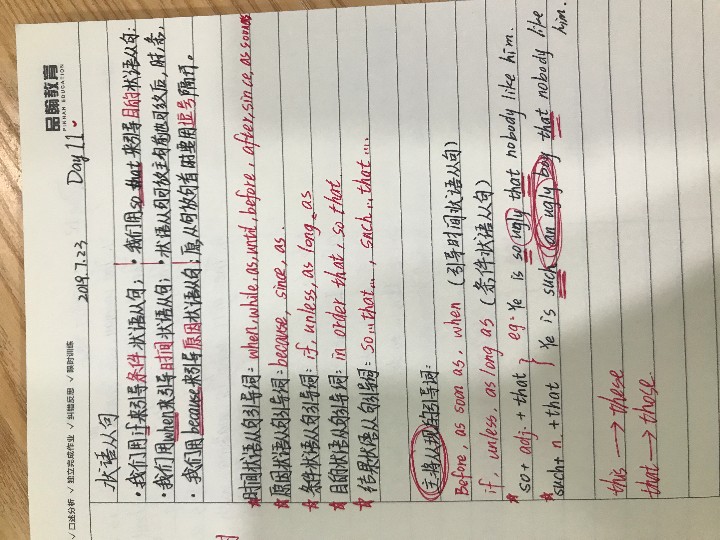 品翰教育
PINHAN EDUCATION
√口述分析 √独立完成作业 √纠错反思 √限时训练
2019.7.23 Day 11.
状语从句
·我们用if来引导条件状语从句; ·我们用so that来引导目的状语从句;
·我们用when来引导时间状语从句; ·状语从句可放主句前也可放后,
·我们用because来引导原因状语从句;
★时间状语从句引导词:when, while, as, until, before, after, since, as soon as
★原因状语从句引导词:because, since, as.
★条件状语从句引导词:if, unless, as long as
★目的状语从句引导词:in order that, so that
★结果状语从句引导词:so...that..., such...that...
主将从现的引导词:
Before, as soon as, when (引导时间状语从句)
if, unless, as long as (条件状语从句)
★so + adj. + that } eg: Ye is so ugly that nobody like him.
★such + n. + that } Ye is such (an ugly boy) that nobody like him.
this → these
that → those